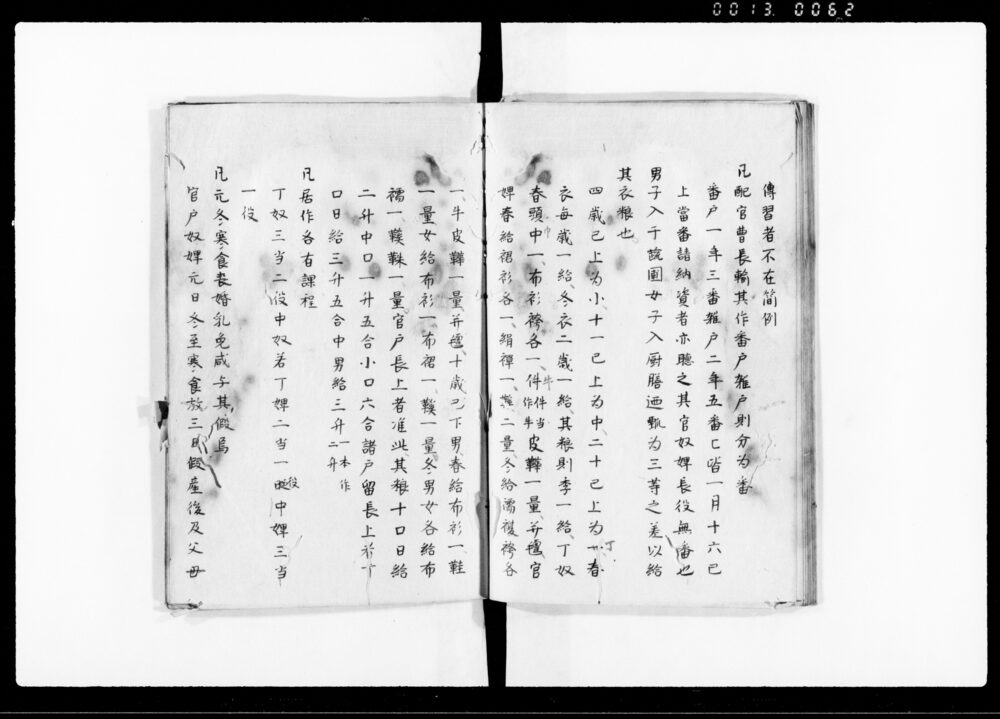 0013.0062
傳習者不在簡例
凡配官曹長輸其作番户雜户則分為番
番户一年三番雜户二年五番亡皆一月十六已
上當番請納資者亦聽之其官奴婢長役無番也
男子入于疏圃女子入厨膳迺甄为三等之差以給
其衣粮也
四歲已上为小十一已上为中二十已上为丁春
衣每歲一給冬衣二歲一給其粮則季一給丁奴
春頭巾一布衫袴各一件作牛皮鞾一量并氊官
牛件当
婢春給裙衫各一絹襌一鞋二量冬給襦複袴各
一、牛皮鞾一量并氊十歲已下男春給布衫一鞋
一量女給布衫一布裙一鞵一量冬男女各給布
襦一、鞵韈一量官户長上者准此其粮十口日給
二升中口一升五合小口六合諸户留長上於丁
口日給三升五合中男給三升
一本作二升
凡居作各有課程
丁奴三当二役中奴若丁婢二当一役中婢三当
一役
凡元冬寒食丧婚乳免咸与其假焉
官户奴婢元日冬至寒食放三日假產後及父母